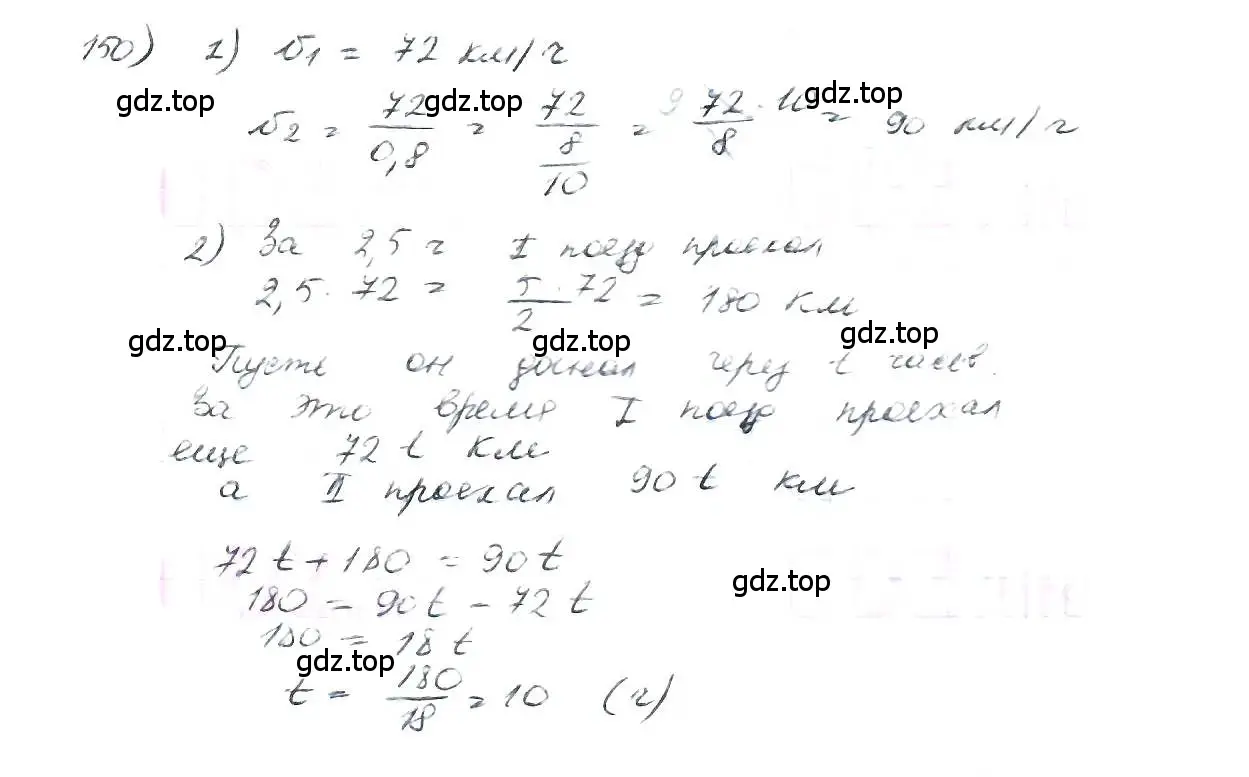 150) 1) v₁ = 72 км/ч
gdz.top gdz.top gdz.top
v₂ = 72/0,8 = 72/(8/10) = 9 72·10/8 = 90 км/ч
2) За 2,5 ч I поезд проехал
2,5 · 72 = 5·72/2 = 180 км
gdz.top gdz.top gdz.top
Пусть он догнал через t часов.
За это время I поезд проехал
еще 72 t км
а II проехал 90 t км
72 t + 180 = 90 t
gdz.top
180 = 90 t - 72 t
180 = 18 t
gdz.top
t = 180/18 = 10 (ч)